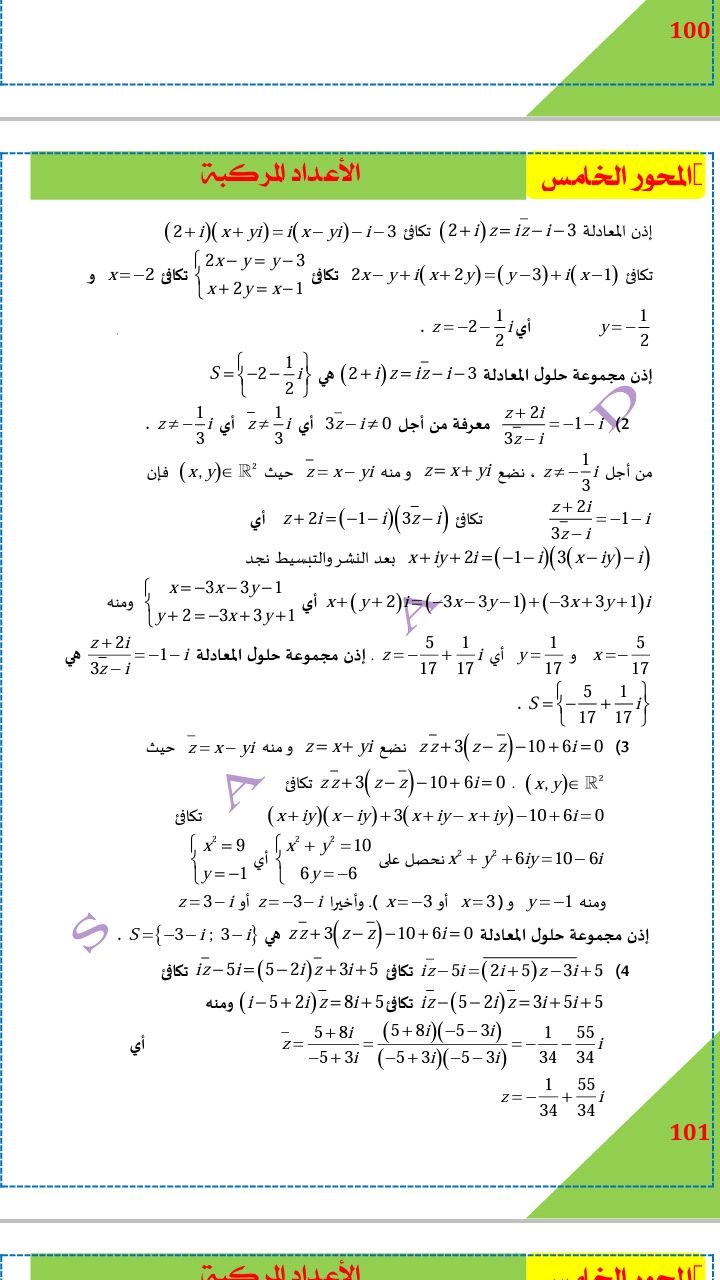 100
المحور الخامس] الأعداد المركبة
إذن المعادلة (2+i)z=iz̄−i−3 تكافئ (2+i)(x+yi)=i(x−yi)−i−3
تكافئ 2x−y+i(x+2y)=(y−3)+i(x−1) تكافئ {2x−y=y−3 ; x+2y=x−1 تكافئ x=−2 و
y=−1/2 أي z=−2−1/2 i .
إذن مجموعة حلول المعادلة (2+i)z=iz̄−i−3 هي S={−2−1/2 i}
2) (z+2i)/(3z̄−i)=−1−i معرفة من أجل 3z̄−i≠0 أي z̄≠1/3 i أي z≠−1/3 i .
من أجل z≠−1/3 i ، نضع z=x+yi ومنه z̄=x−yi حيث (x,y)∈ℝ² فإن
(z+2i)/(3z̄−i)=−1−i تكافئ z+2i=(−1−i)(3z̄−i) أي
x+iy+2i=(−1−i)(3(x−iy)−i) بعد النشر والتبسيط نجد
x+(y+2)i=(−3x−3y−1)+(−3x+3y+1)i أي {x=−3x−3y−1 ; y+2=−3x+3y+1 ومنه
x=−5/17 و y=1/17 أي z=−5/17+1/17 i . إذن مجموعة حلول المعادلة (z+2i)/(3z̄−i)=−1−i هي
S={−5/17+1/17 i} .
3) zz̄+3(z−z̄)−10+6i=0 نضع z=x+yi ومنه z̄=x−yi حيث
(x,y)∈ℝ² . zz̄+3(z−z̄)−10+6i=0 تكافئ
(x+iy)(x−iy)+3(x+iy−x+iy)−10+6i=0 تكافئ
x²+y²+6iy=10−6i نحصل على {x²+y²=10 ; 6y=−6 أي {x²=9 ; y=−1
ومنه y=−1 و (x=3 أو x=−3 ). وأخيرا z=−3−i أو z=3−i
إذن مجموعة حلول المعادلة zz̄+3(z−z̄)−10+6i=0 هي S={−3−i ; 3−i} .
4) iz̄−5i=\overline{(2i+5)z−3i}+5 تكافئ iz̄−5i=(5−2i)z̄+3i+5 تكافئ
iz̄−(5−2i)z̄=3i+5i+5 تكافئ (i−5+2i)z̄=8i+5 ومنه
z̄=(5+8i)/(−5+3i)=((5+8i)(−5−3i))/((−5+3i)(−5−3i))=−1/34−55/34 i أي
z=−1/34+55/34 i
101
D
A
A
S
المحور الخامس] الأعداد المركبة